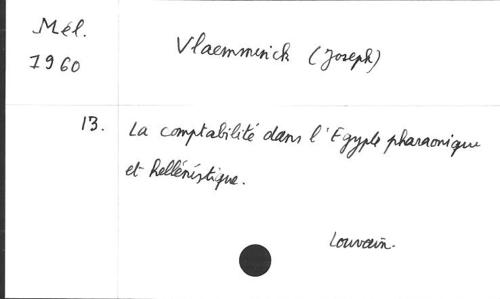 Mél.
1960
Vlaemminck (Joseph)
13. La comptabilité dans l'Egypte pharaonique
et hellénistique.
Louvain.